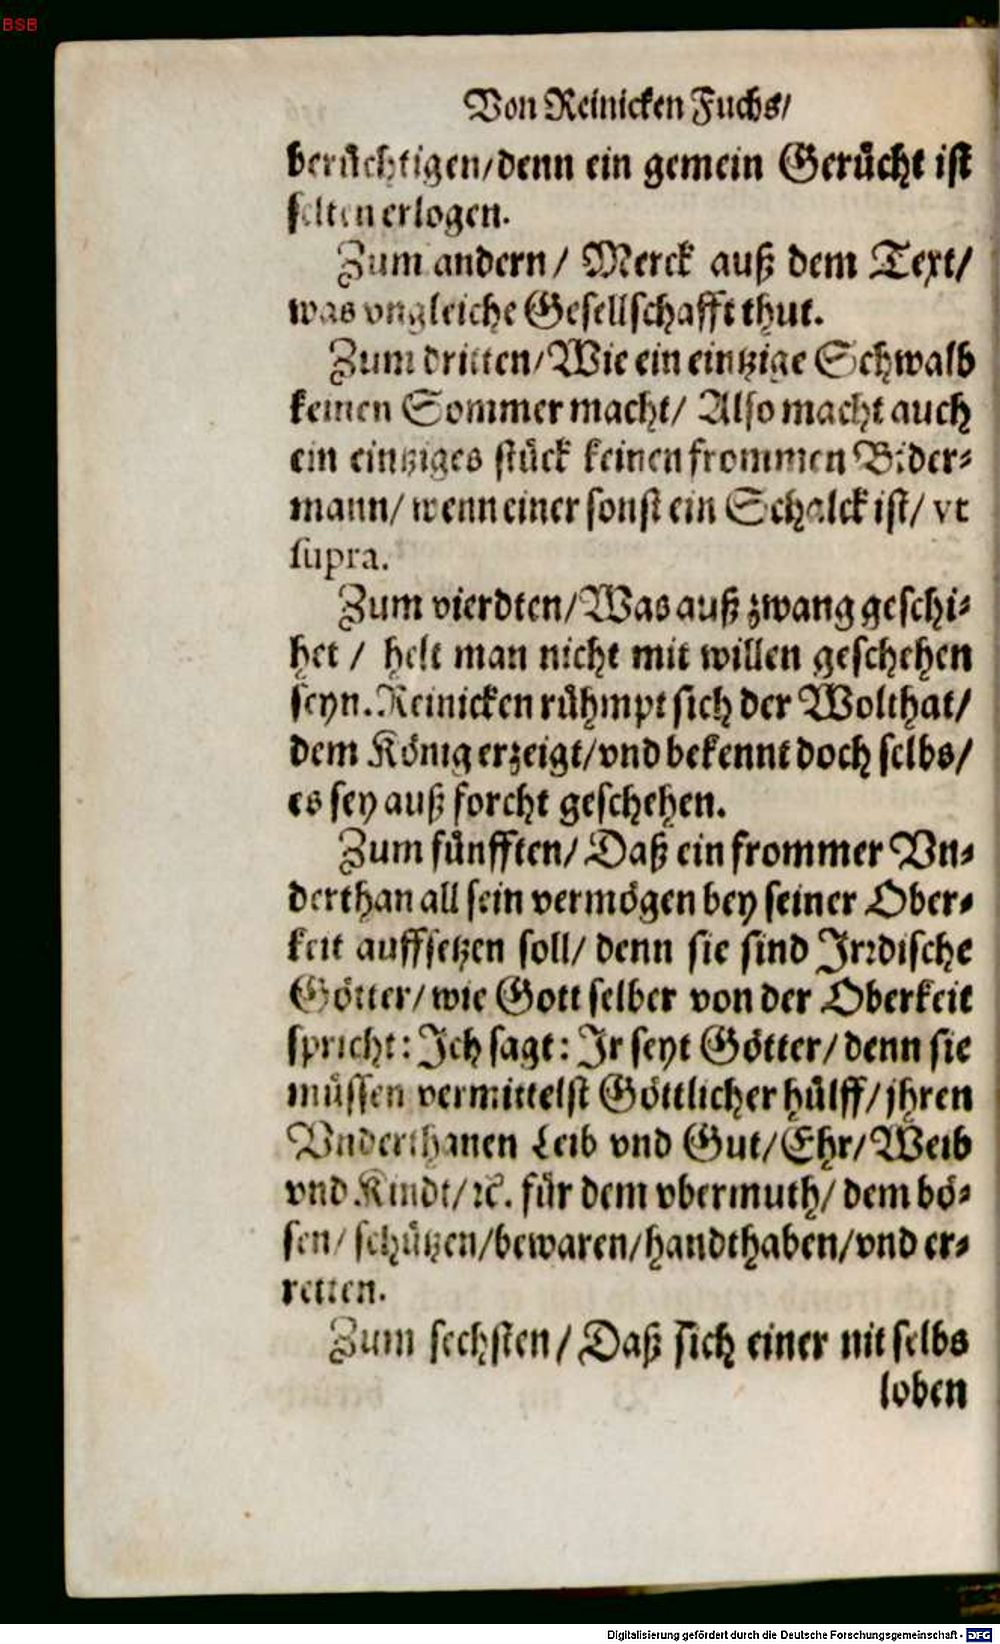 BSB
Von Reinicken Fuchs/
berüchtigen/denn ein gemein Gerücht ist
selten erlogen.
Zum andern/ Merck auß dem Text/
was vngleiche Gesellschafft thut.
Zum dritten/Wie ein eintzige Schwalb
keinen Sommer macht/ Also macht auch
ein eintziges stück keinen frommen Bider⸗
mann/ wenn einer sonst ein Schalck ist/ vt
supra.
Zum vierdten/Was auß zwang geschi⸗
het / helt man nicht mit willen geschehen
seyn. Reinicken rühmpt sich der Wolthat/
dem König erzeigt/vnd bekennt doch selbs/
es sey auß forcht geschehen.
Zum fünfften/ Daß ein frommer Vn⸗
derthan all sein vermögen bey seiner Ober⸗
keit auffsetzen soll/ denn sie sind Jrrdische
Götter/ wie Gott selber von der Oberkeit
spricht: Jch sagt: Jr seyt Götter/ denn sie
müssen vermittelst Göttlicher hülff/ jhren
Vnderthanen Leib vnd Gut/ Ehr/ Weib
vnd Kindt/ ꝛc. für dem vbermuth/ dem bö⸗
sen/ schützen/bewaren/handthaben/vnd er⸗
retten.
Zum sechsten/ Daß sich einer nit selbs
loben
Digitalisierung gefördert durch die Deutsche Forschungsgemeinschaft - DFG